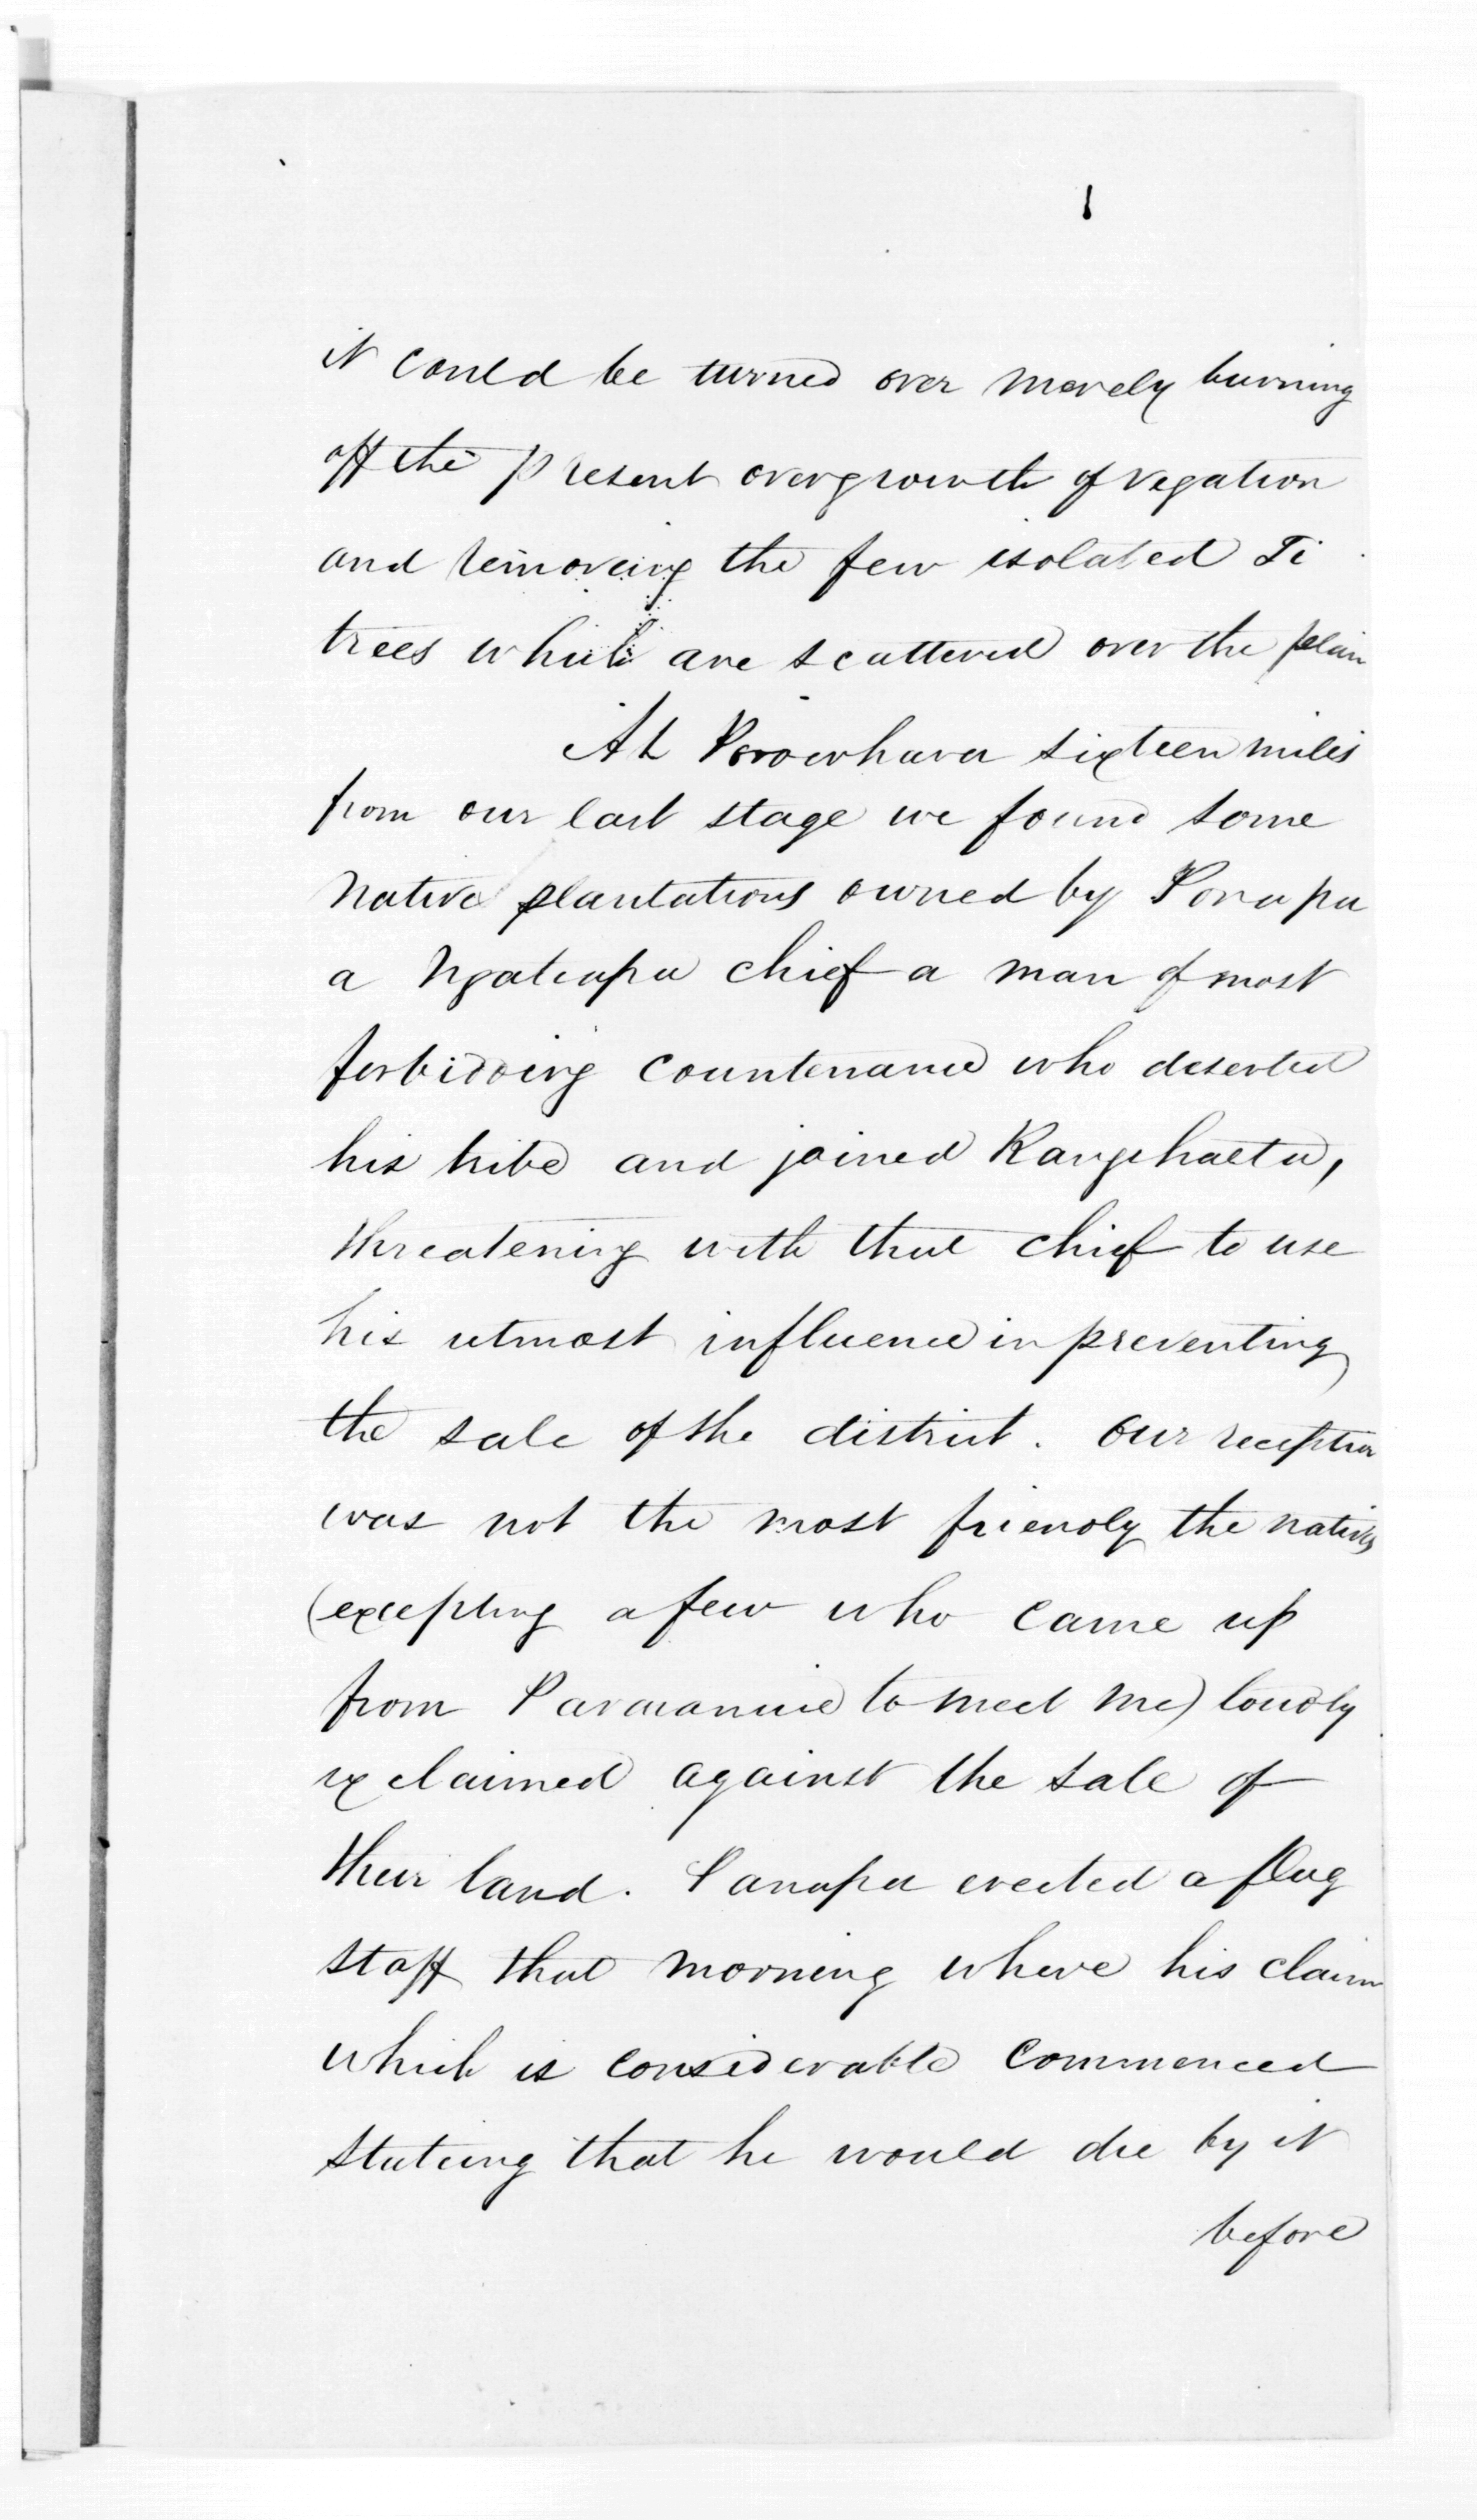 it could be turned over merely burning
off the present overgrowth of vegation
and removeing the few isolated Ti
trees which are scattered over the plain
At Porowhara sixteen miles
from our last stage we found some
native plantations owned by Porapa
a Ngateapa chief a man of most
forbidding countenance who deserted
his tribe and joined Rangehaeta,
threatening with that chief to use
his utmost influence in preventing
the sale of the district. Our reception
was not the most friendly the natives
(excepting a few who came up
from Paraaanuie to meet me) loudly
exclaimed against the sale of
their land. Panapa erected a flag
staff that morning where his claim
which is considerable commenced
stateing that he would die by it
before